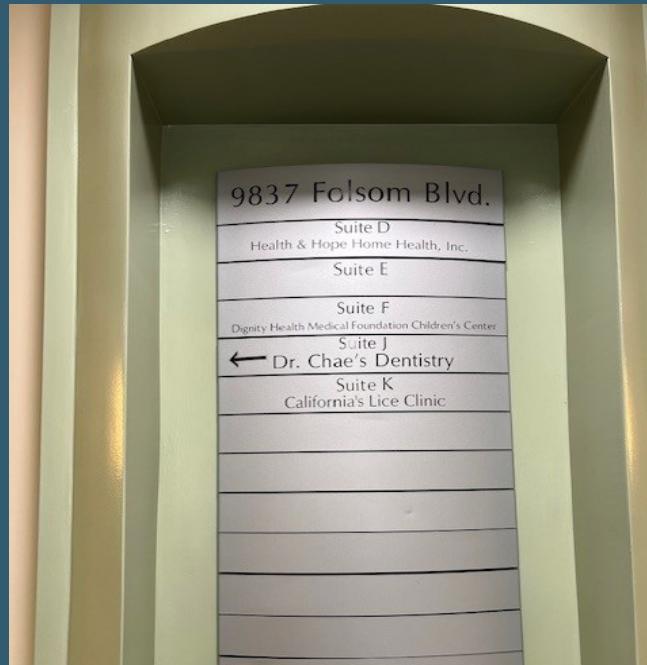 9837 Folsom Blvd.
Suite D
Health & Hope Home Health, Inc.
Suite E
Suite F
Dignity Health Medical Foundation Children's Center
Suite J
← Dr. Chae's Dentistry
Suite K
California's Lice Clinic